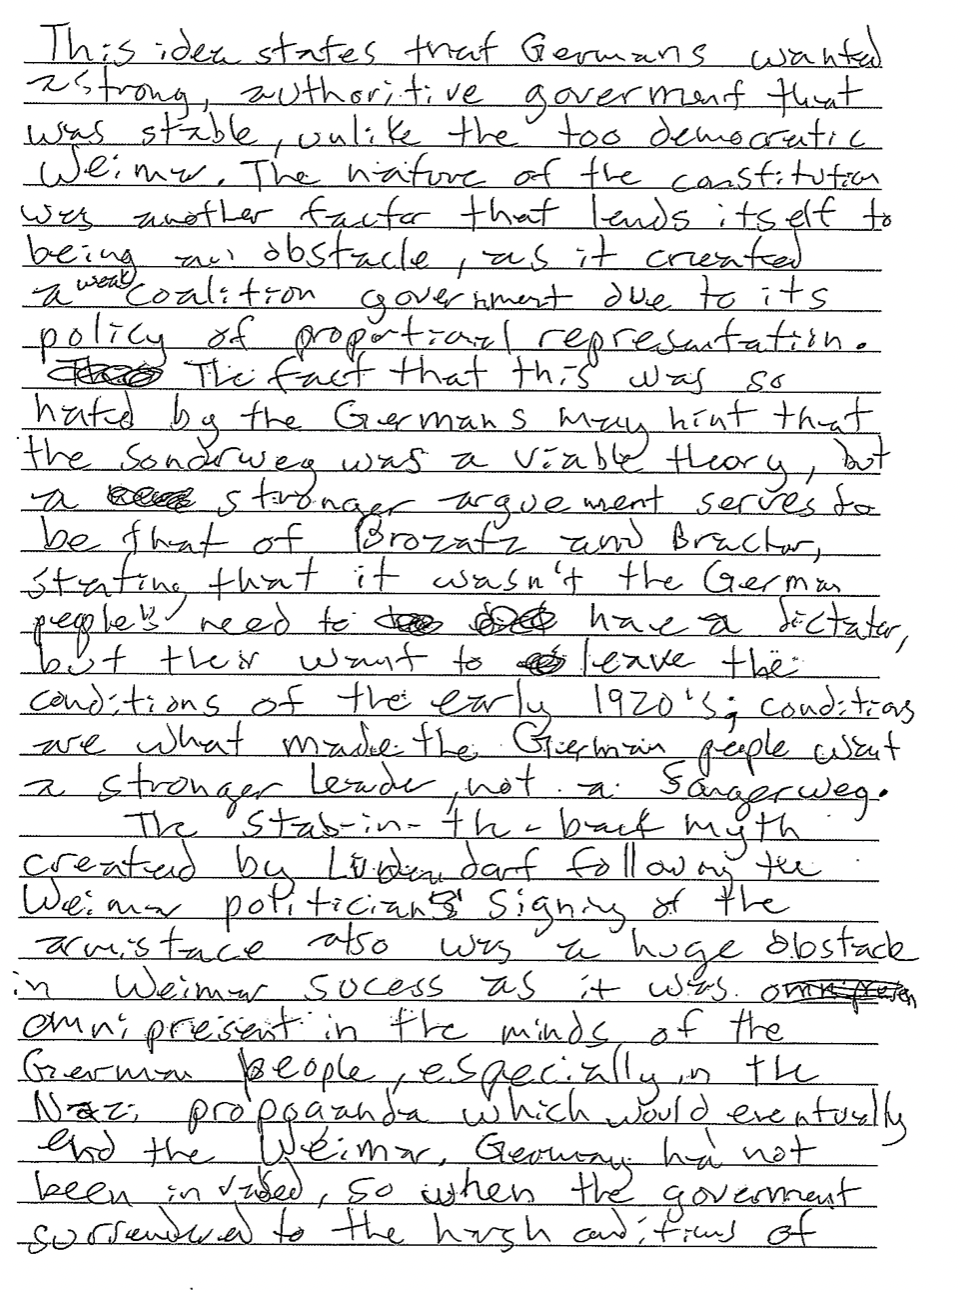 This idea states that Germans wanted
a strong, authoritive goverment that
was stable, unlike the too democratic
Weimar. The nature of the constitution
was another factor that lends itself to
being an obstacle, as it created
a weak coalition government due to its
policy of proportional representation.
The fact that this was so
hated by the Germans may hint that
the Sonderweg was a viable theory, but
a stronger arguement serves to
be that of Brozatz and Bracher,
stating that it wasn't the German
people's need to have a dictator,
but their want to leave the
conditions of the early 1920's; conditions
are what made the German people want
a stronger leader, not a Sangerweg.
The "Stab-in-the-back" myth
created by Ludendorf following the
Weimar politicians' signing of the
armistace also was a huge obstacle
in Weimar sucess as it was
omnipresent in the minds of the
German people, especially in the
Nazi propgaanda which would eventually
end the Weimar. Germany had not
been invaded, so when the goverment
surrendered to the harsh conditions of